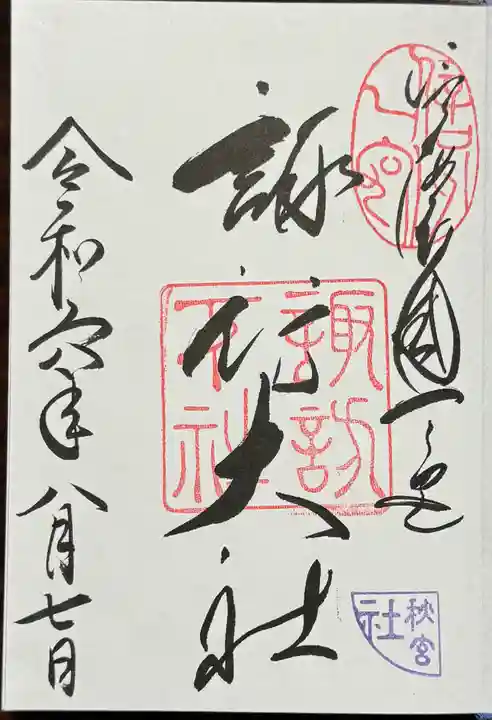 信濃國一之宮
諏訪大社
令和六年八月七日
信州一宮
諏訪
下社
秋宮
社